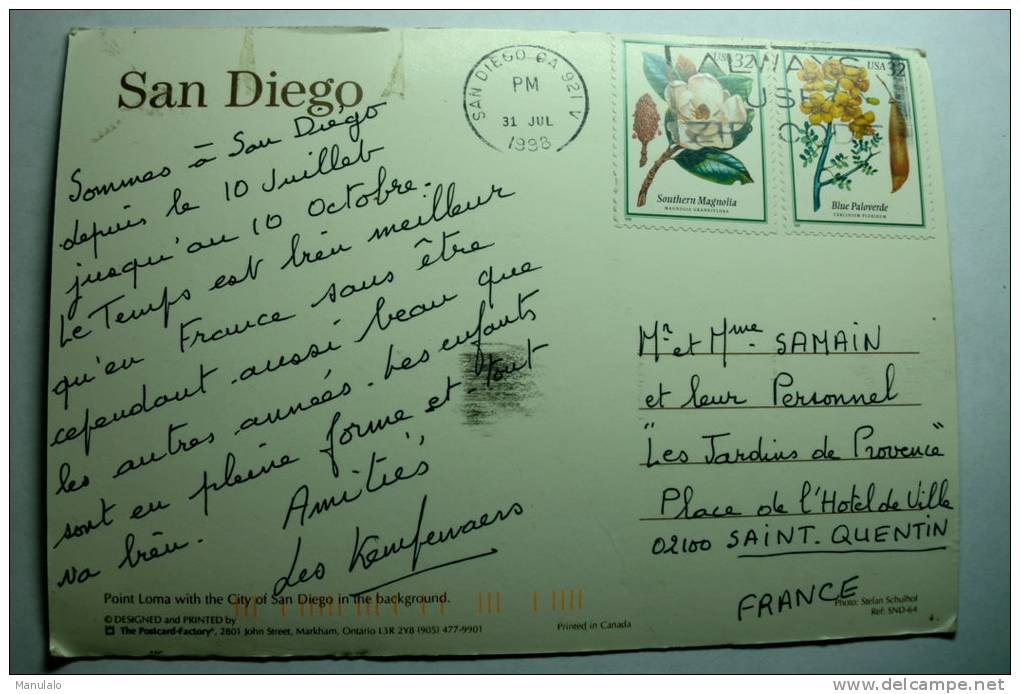 San Diego
Sommes à San Diégo
depuis le 10 Juillet
jusqu'au 10 Octobre.
Le Temps est bien meilleur
qu'en France sans être
cependant aussi beau que
les autres années. Les enfants
sont en pleine forme et tout
va bien.
Amitiés
Les Kempenaers
SAN DIEGO CA 921
PM
31 JUL
1998
ALWAYS
USE
ZIP CODE
USA 32
Southern Magnolia
MAGNOLIA GRANDIFLORA
USA 32
Blue Paloverde
Mr et Mme SAMAIN
et leur Personnel
"Les Jardins de Provence"
Place de l'Hotel de Ville
02100 SAINT-QUENTIN
FRANCE
Point Loma with the City of San Diego in the background.
© DESIGNED and PRINTED by
The Postcard-Factory®, 2801 John Street, Markham, Ontario L3R 2Y8 (905) 477-9901
Printed in Canada
Photo: Stefan Schulhof
Ref: SND-64
4 -
Manulalo
delcampe.net